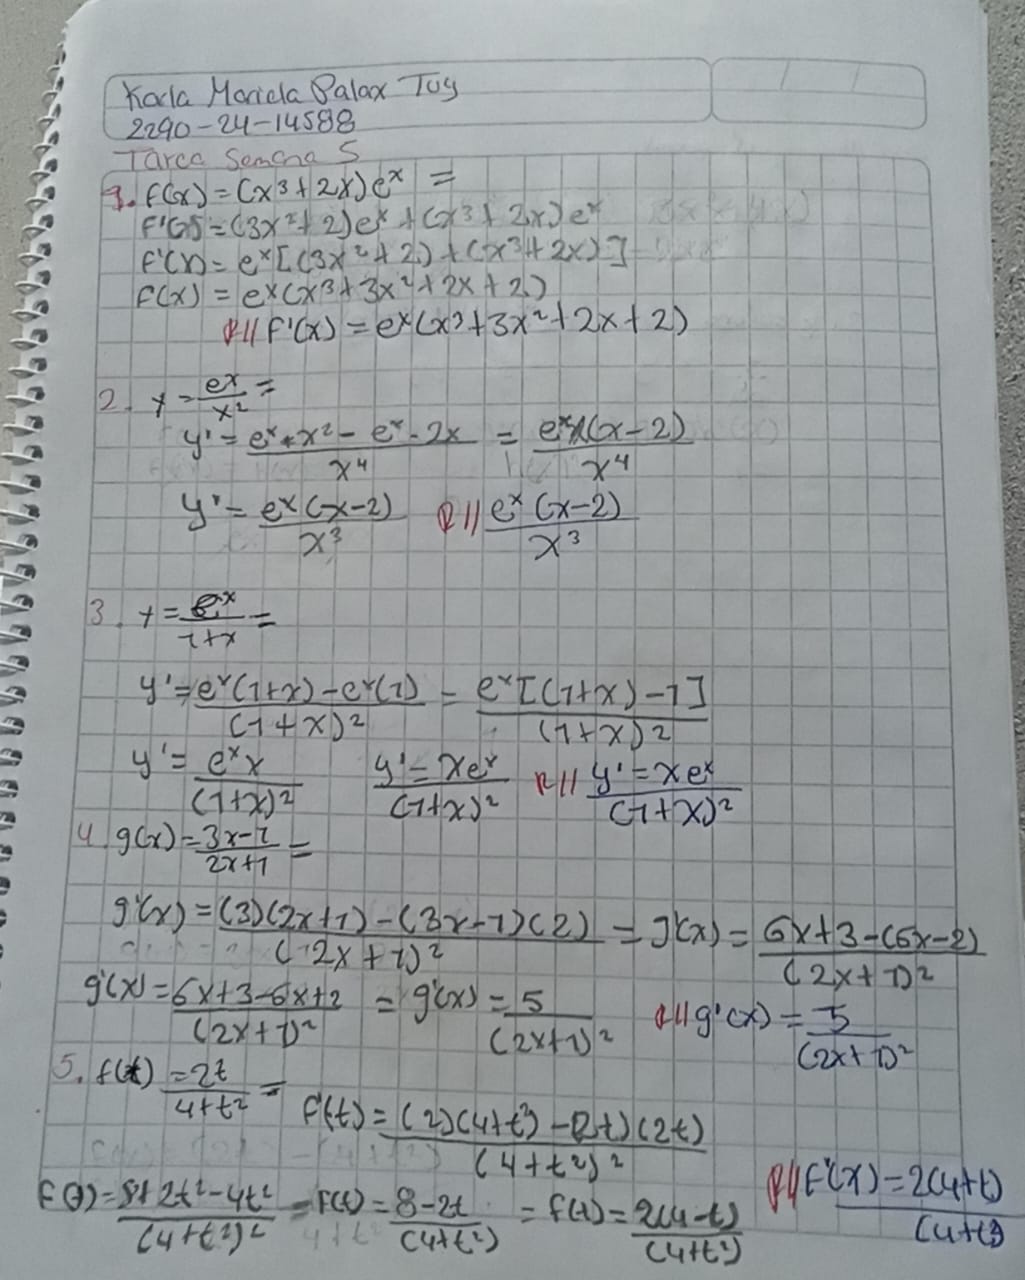 Karla Mariela Palax Tuy
2290-24-14588
Tarea Semana 5
1. f(x) = (x³ + 2x)eˣ =
f'(x) = (3x² + 2)eˣ + (x³ + 2x)eˣ
f'(x) = eˣ[(3x² + 2) + (x³ + 2x)]
f(x) = eˣ(x³ + 3x² + 2x + 2)
R// f'(x) = eˣ(x³ + 3x² + 2x + 2)
2. y = eˣ/x² =
y' = (eˣ · x² - eˣ · 2x)/x⁴ = eˣx(x-2)/x⁴
y' = eˣ(x-2)/x³ R// eˣ(x-2)/x³
3. y = eˣ/(1+x) =
y' = (eˣ(1+x) - eˣ(1))/(1+x)² = eˣ[(1+x)-1]/(1+x)²
y' = eˣx/(1+x)² y' = xeˣ/(1+x)² R// y' = xeˣ/(1+x)²
4. g(x) = (3x-1)/(2x+1) =
g'(x) = ((3)(2x+1) - (3x-1)(2))/(2x+1)² = g'(x) = (6x+3-(6x-2))/(2x+1)²
g'(x) = (6x+3-6x+2)/(2x+1)² = g'(x) = 5/(2x+1)² R// g'(x) = 5/(2x+1)²
5. f(t) = 2t/(4+t²) =
f'(t) = ((2)(4+t²) - (2t)(2t))/(4+t²)²
f(t) = (8+2t²-4t²)/(4+t²)² = f(t) = (8-2t)/(4+t²) = f(t) = 2(4-t)/(4+t²) R// f'(x) = 2(4+t)